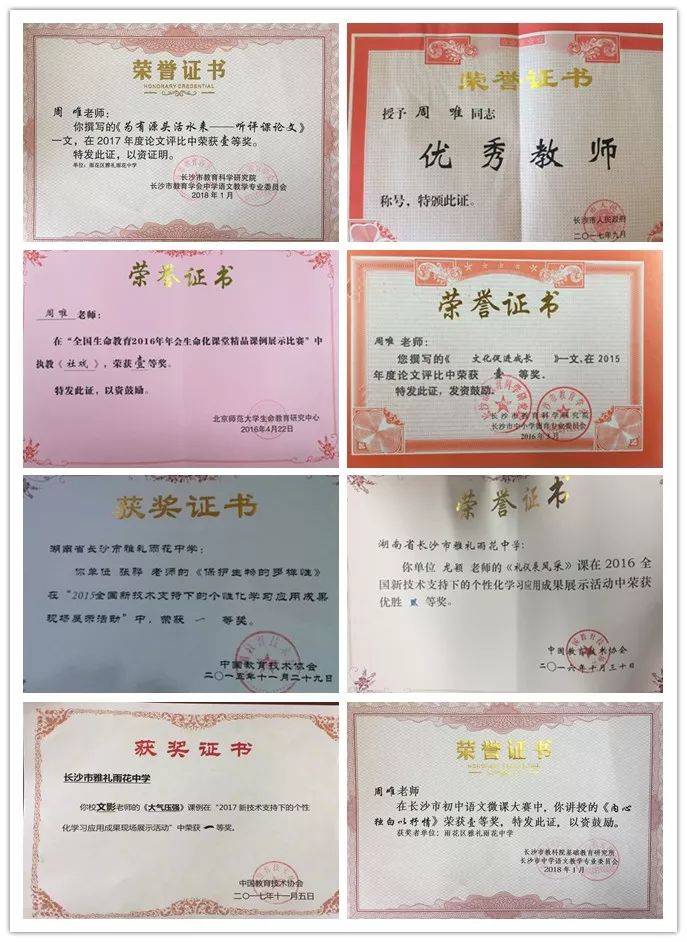 荣誉证书
HONORARY CREDENTIAL
周 唯老师：
你撰写的《为有源头活水来——听评课论文》
一文，在 2017 年度论文评比中荣获壹等奖。
特发此证，以资证明。
单位：雨花区雅礼雨花中学
长沙市教育科学研究院
长沙市教育学会中学语文教学专业委员会
2018 年 1 月
荣誉证书
授予 周 唯 同志
优秀教师
称号，特颁此证。
长沙市人民政府
二〇一七年九月
荣誉证书
周唯 老师：
在“全国生命教育2016年年会生命化课堂精品课例展示比赛”中
执教《社戏》，荣获壹等奖。
特发此证，以资鼓励。
北京师范大学生命教育研究中心
2016年4月22日
荣誉证书
周唯 老师：
您撰写的《 文化促进成长 》一文，在 2015
年度论文评比中荣获 壹 等奖．
特发此证，发资鼓励．
长沙市教育科学研究院
长沙市中小学教育专业委员会
2016 年 3 月
获奖证书
湖南省长沙市雅礼雨花中学：
你单位 张骅 老师的《保护生物的多样性》
在“2015全国新技术支持下的个性化学习应用成果
现场展示活动”中，荣获 一 等奖。
中国教育技术协会
二〇一五年十一月二十九日
荣誉证书
湖南省长沙市雅礼雨花中学：
你单位 尤颖 老师的《礼仪展风采》课在 2016 全
国新技术支持下的个性化学习应用成果展示活动中荣获
优胜 贰 等奖。
中国教育技术协会
二〇一六年十月三十日
获奖证书
长沙市雅礼雨花中学
你校文影老师的《大气压强》课例在“2017 新技术支持下的个性
化学习应用成果现场展示活动”中荣获一等奖。
中国教育技术协会
二〇一七年十一月五日
荣誉证书
HONORARY CREDENTIAL
周唯老师
在长沙市初中语文微课大赛中，你讲授的《内心
独白以抒情》荣获壹等奖，特发此证，以资鼓励。
获奖者单位：雨花区雅礼雨花中学
长沙市教科院基础教育研究所
长沙市中学语文教学专业委员会
2018 年 1 月